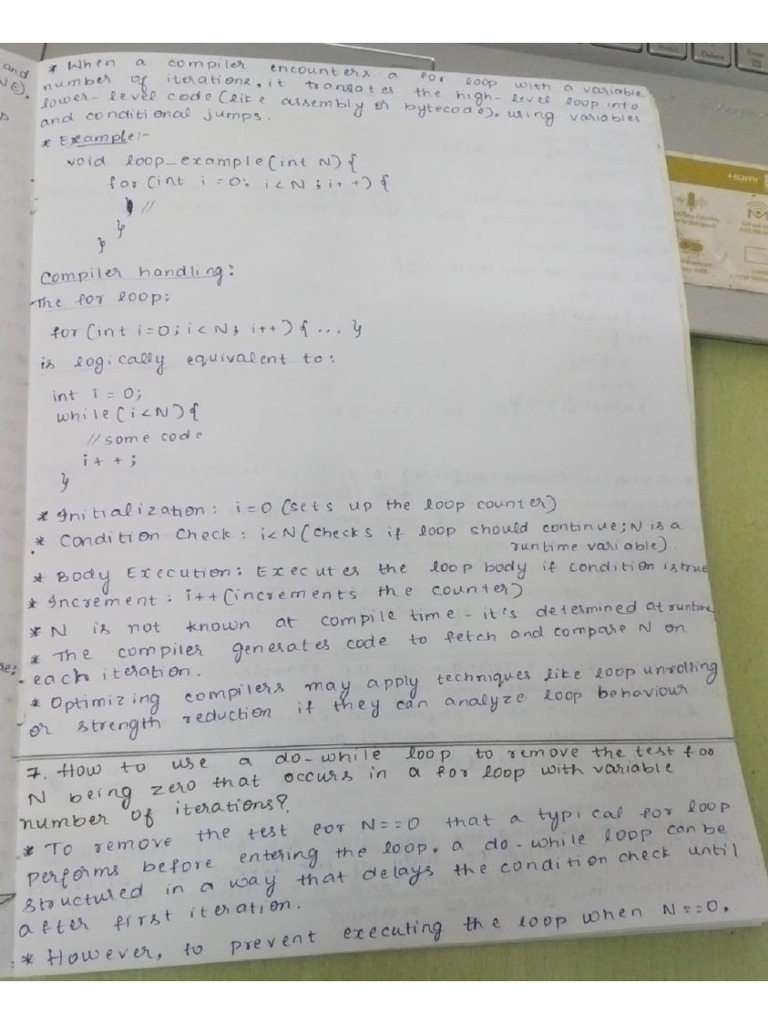 and
* When a compiler encounters a for loop with a variable
number of iterations, it translates the high-level loop into
lower-level code (like assembly or bytecode), using variables
and conditional jumps.
* Example:-
void loop_example(int N){
for (int i = 0; i < N ; i + +) {
//
}
}
Compiler handling:
The for loop:
for (int i=0; i < N; i++) { ... }
is logically equivalent to:
int i = 0;
while (i<N) {
// some code
i + + ;
}
* Initialization : i=0 (sets up the loop counter)
* Condition Check : i<N (checks if loop should continue; N is a
runtime variable)
* Body Execution: Executes the loop body if condition is true
* Increment : i++ (increments the counter)
* N is not known at compile time - it's determined at runtime
* The compiler generates code to fetch and compare N on
each iteration.
* Optimizing compilers may apply techniques like loop unrolling
or strength reduction if they can analyze loop behaviour
7. How to use a do-while loop to remove the test for
N being zero that occurs in a for loop with variable
number of iterations?
* To remove the test for N==0 that a typical for loop
performs before entering the loop, a do-while loop can be
structured in a way that delays the condition check until
after first iteration.
* However, to prevent executing the loop when N==0.